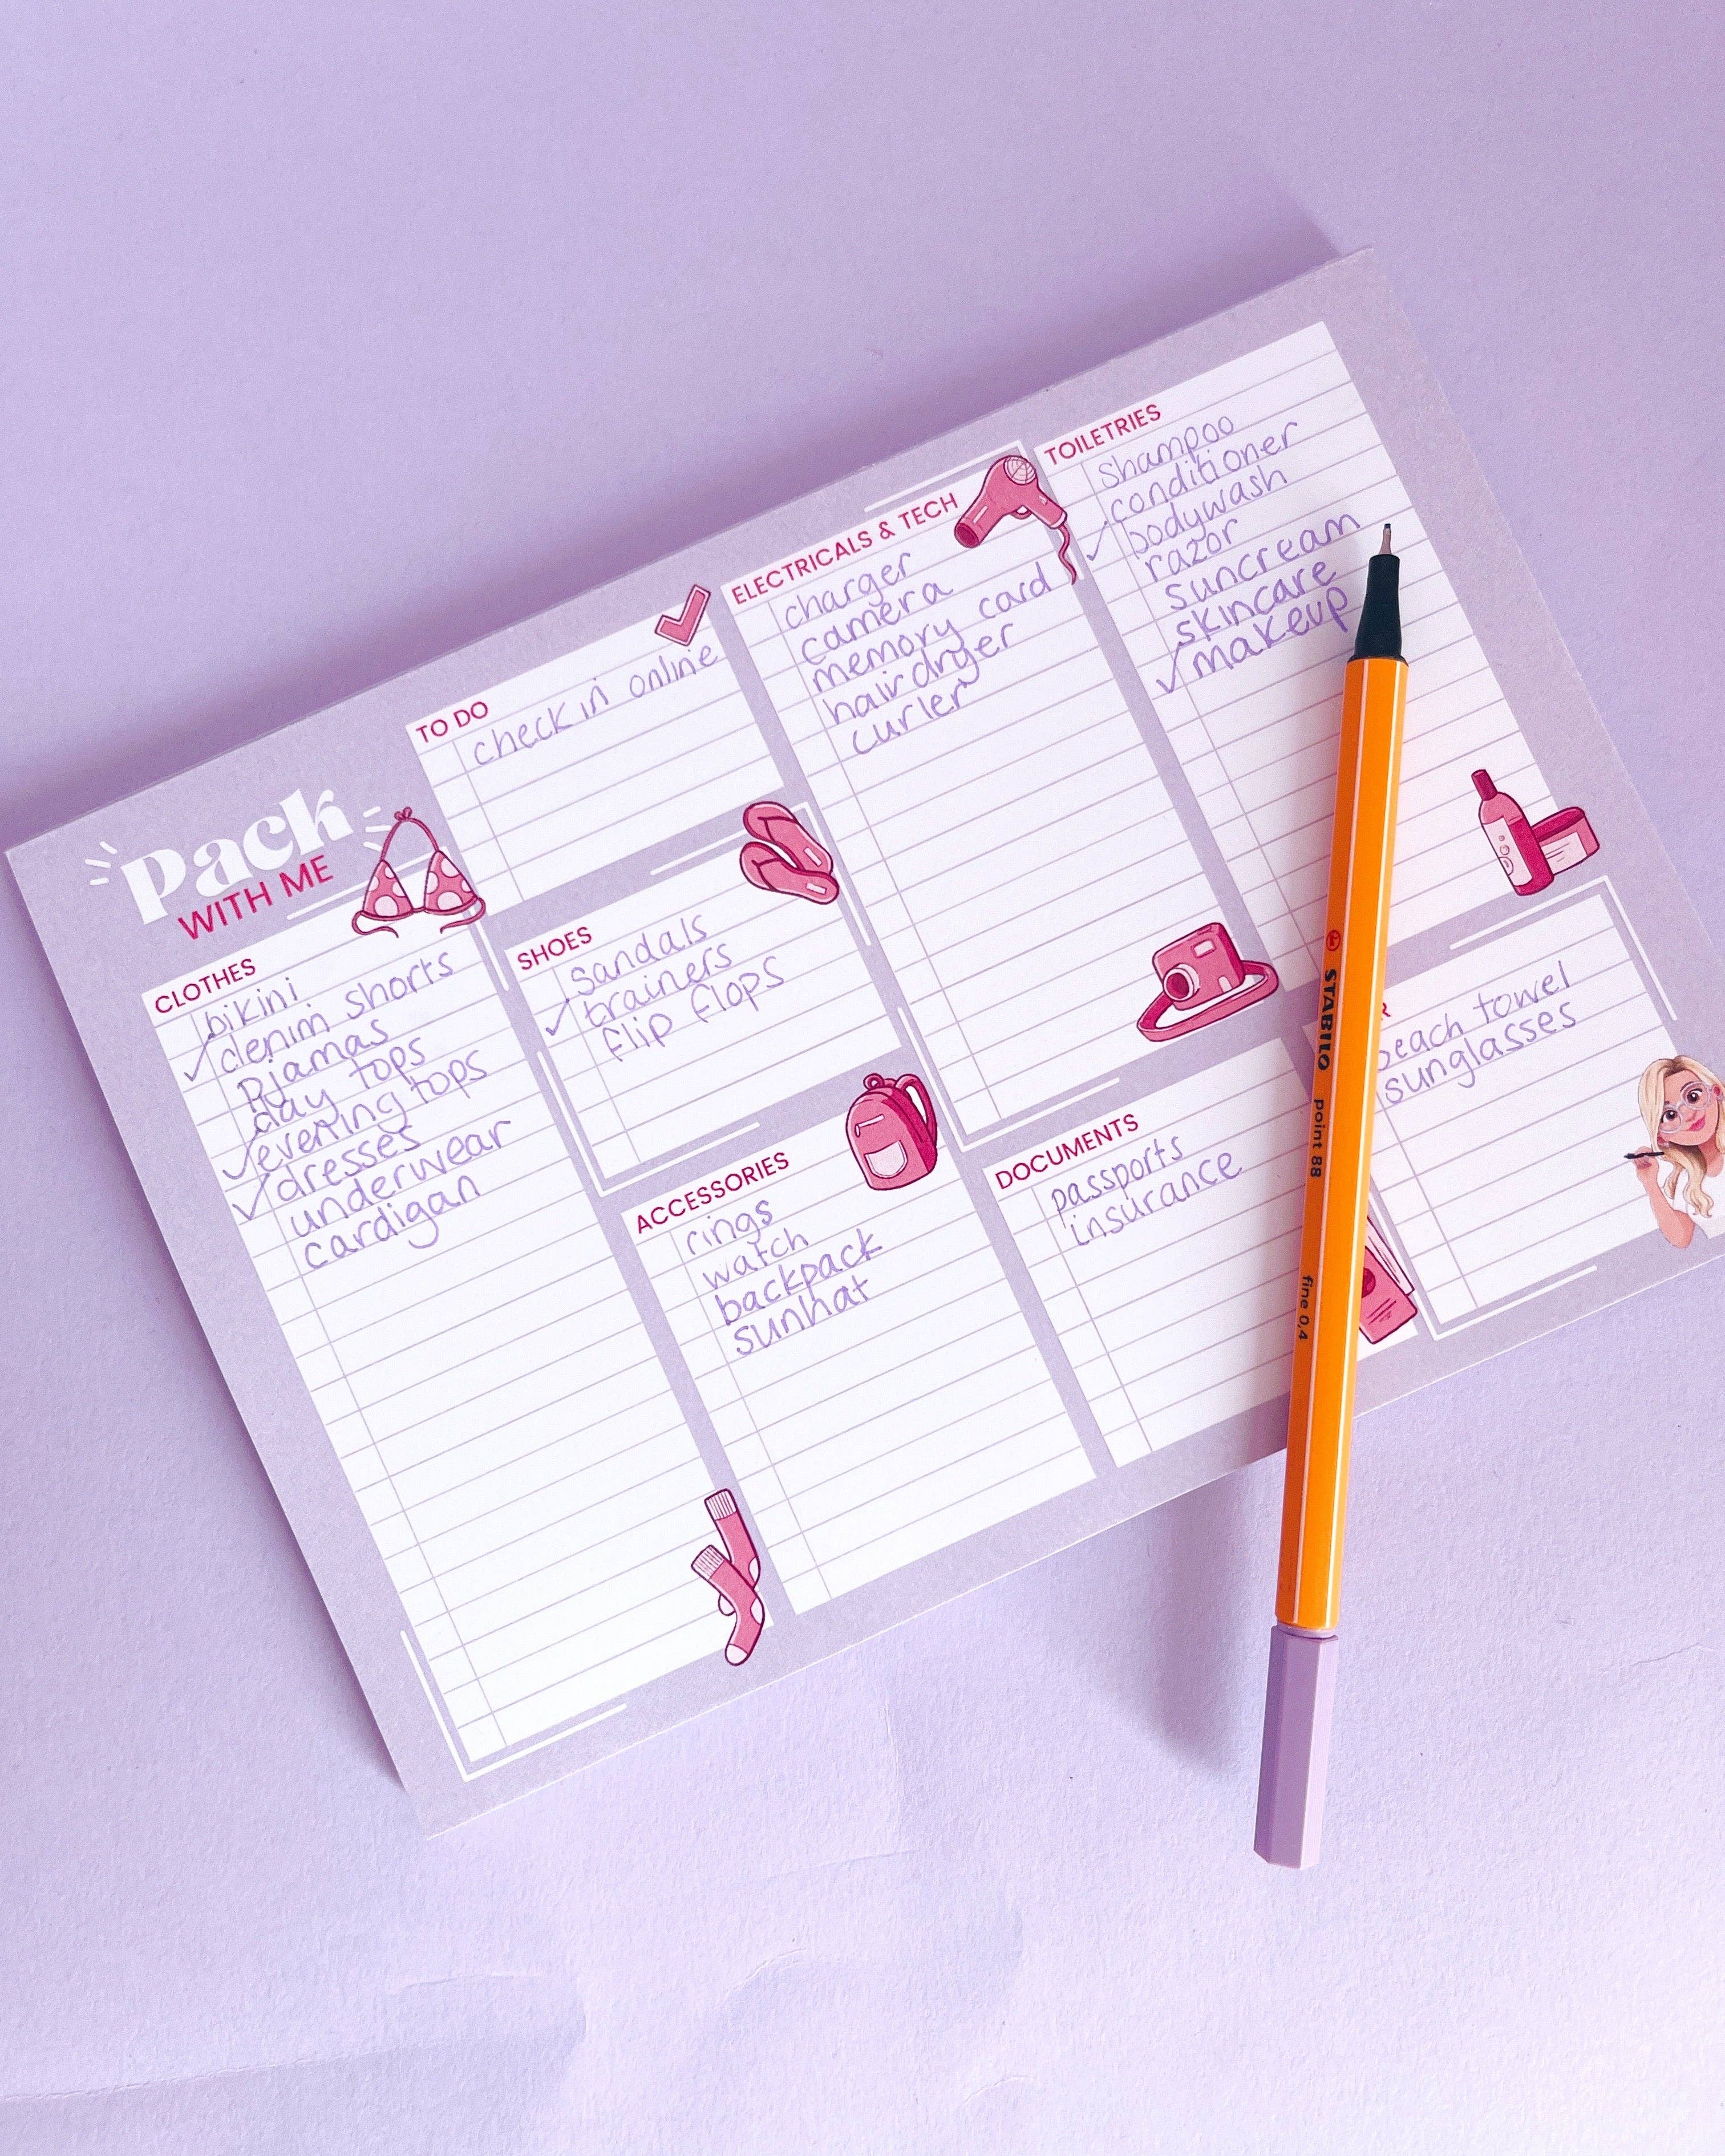 Pack
WITH ME
CLOTHES
bikini
✓ denim shorts
Pjamas
day tops
✓ evening tops
✓ dresses
underwear
cardigan
TO DO
check in online
SHOES
sandals
✓ trainers
flip flops
ACCESSORIES
rings
watch
backpack
sunhat
ELECTRICALS & TECH
charger
camera
memory card
hairdryer
curler
DOCUMENTS
passports
insurance
TOILETRIES
Shampoo
conditioner
✓ bodywash
razor
suncream
skincare
✓ makeup
R
beach towel
sunglasses
STABILO point 88 fine 0,4